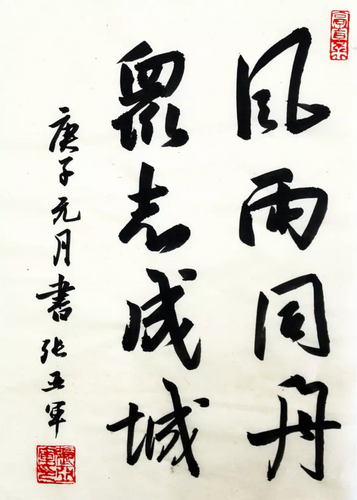 風雨同舟
眾志成城
庚子元月書张亚军